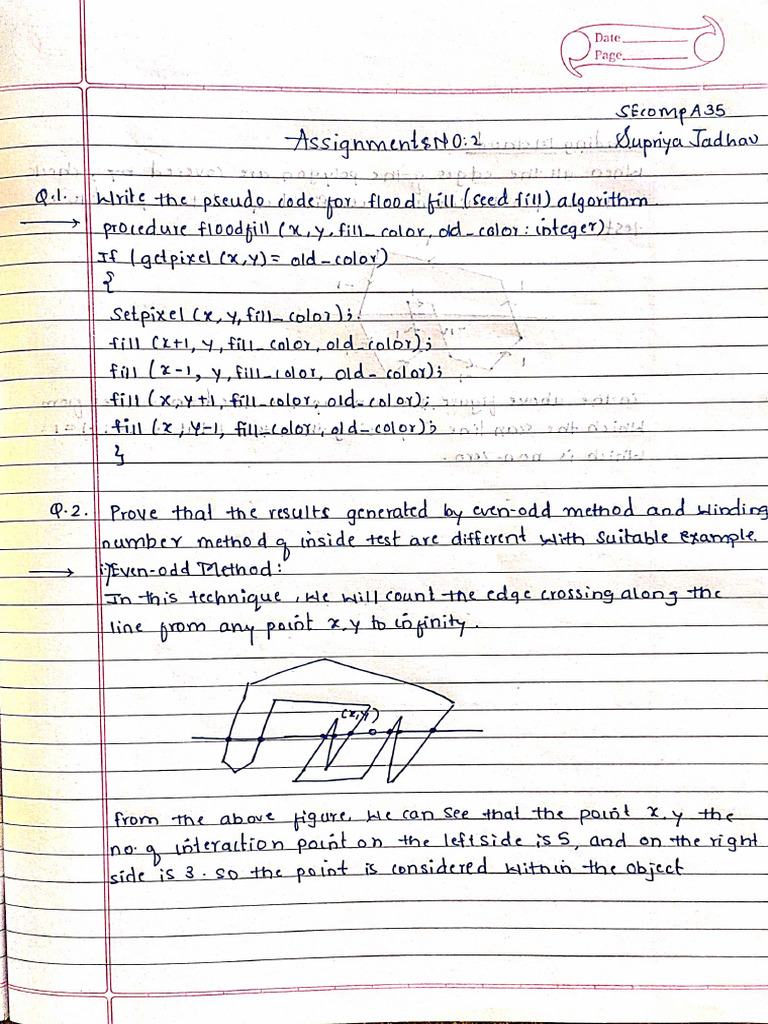 Date
Page
SEcompA35
Assignment&NO:2 Supriya Jadhav
Q.1. Write the pseudo code for flood fill (seed fill) algorithm
procedure floodfill (x, y, fill_color, old_color : integer)
If (getpixel (x,y) = old_color)
{
Setpixel (x, y, fill_color);
fill (x+1, y, fill_color, old_color);
fill (x-1, y, fill_color, old_color);
fill (x, y+1, fill_color, old_color);
fill (x, y-1, fill_color, old_color);
}
Q.2. Prove that the results generated by even-odd method and winding
number method of inside test are different with suitable example.
→ i) Even-odd Method:
In this technique, we will count the edge crossing along the
line from any point x,y to infinity.
(x,y)
from the above figure, we can see that the point x,y the
no. of interaction point on the leftside is 5, and on the right
side is 3. so the point is considered within the object